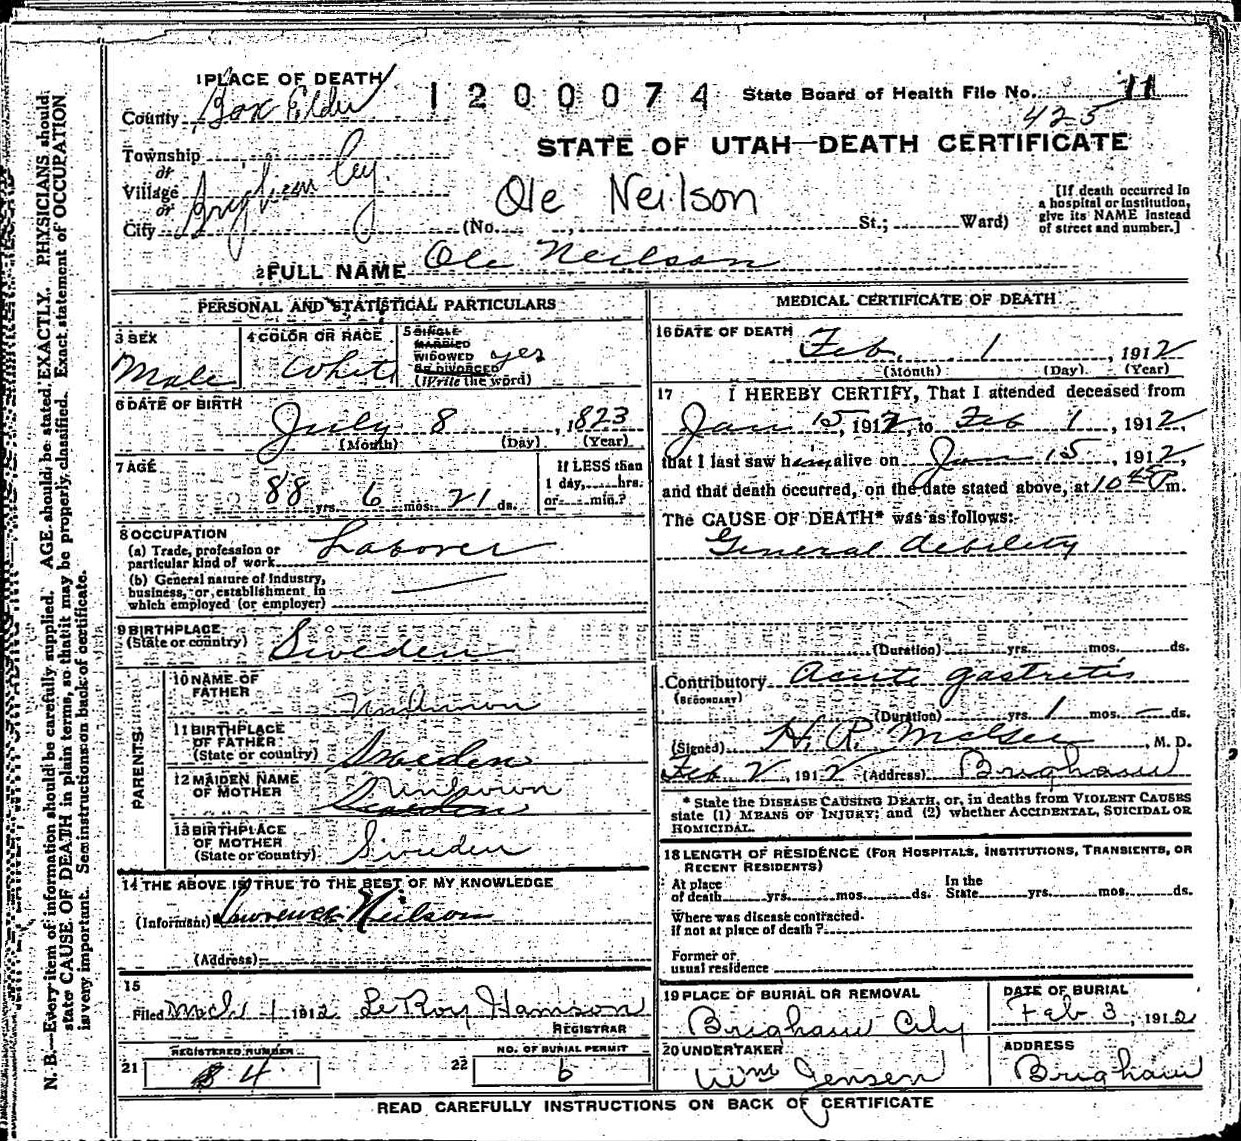 1 PLACE OF DEATH
1200074
State Board of Health File No. 11
425
County Box Elder
STATE OF UTAH—DEATH CERTIFICATE
Township
or
Village
or
City Brigham Cy.
Ole Neilson
(No. , St.; Ward)
[If death occurred in
a hospital or institution,
give its NAME instead
of street and number.]
2 FULL NAME Ole Neilson
PERSONAL AND STATISTICAL PARTICULARS
3 SEX
Male
4 COLOR OR RACE
White
5 SINGLE
MARRIED
WIDOWED yes
OR DIVORCED
(Write the word)
6 DATE OF BIRTH
July 8, 1823
(Month) (Day) (Year)
7 AGE
88 yrs. 6 mos. 21 ds.
If LESS than
1 day, hrs.
or min.?
8 OCCUPATION
(a) Trade, profession or
particular kind of work Laborer
(b) General nature of industry,
business, or establishment in
which employed (or employer)
9 BIRTHPLACE
(State or country) Sweden
PARENTS
10 NAME OF
FATHER Unknown
11 BIRTHPLACE
OF FATHER
(State or country) Sweden
12 MAIDEN NAME
OF MOTHER Unknown
Sweden
13 BIRTHPLACE
OF MOTHER
(State or country) Sweden
14 THE ABOVE IS TRUE TO THE BEST OF MY KNOWLEDGE
(Informant) Lawrence Neilson
(Address)
15
Filed Mch 1 1912 LeRoy Hamson
REGISTRAR
21 REGISTERED NUMBER
4
22 NO. OF BURIAL PERMIT
6
MEDICAL CERTIFICATE OF DEATH
16 DATE OF DEATH
Feb. 1, 1912
(Month) (Day) (Year)
17 I HEREBY CERTIFY, That I attended deceased from
Jan 15, 1912, to Feb 1, 1912,
that I last saw him alive on Jan 15, 1912,
and that death occurred, on the date stated above, at 10 45 P m.
The CAUSE OF DEATH* was as follows:
General debility
(Duration) yrs. mos. ds.
Contributory Acute gastritis
(SECONDARY)
(Duration) yrs. 1 mos. — ds.
(Signed) H. R. , M. D.
Feb 2, 1912 (Address) Brigham
* State the DISEASE CAUSING DEATH, or, in deaths from VIOLENT CAUSES
state (1) MEANS OF INJURY; and (2) whether ACCIDENTAL, SUICIDAL OR
HOMICIDAL.
18 LENGTH OF RESIDENCE (FOR HOSPITALS, INSTITUTIONS, TRANSIENTS, OR
RECENT RESIDENTS)
At place
of death yrs. mos. ds.
In the
State yrs. mos. ds.
Where was disease contracted
if not at place of death?
Former or
usual residence
19 PLACE OF BURIAL OR REMOVAL
Brigham City
DATE OF BURIAL
Feb 3, 1912
20 UNDERTAKER
Wm Jensen
ADDRESS
Brigham
READ CAREFULLY INSTRUCTIONS ON BACK OF CERTIFICATE
N. B.—Every item of information should be carefully supplied. AGE should be stated EXACTLY. PHYSICIANS should
state CAUSE OF DEATH in plain terms, so that it may be properly classified. Exact statement of OCCUPATION
is very important. See instructions on back of certificate.